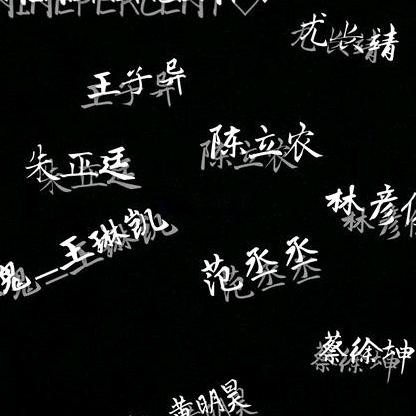 NINEPERCENT♡
尤长靖
王子异
陈立农
朱正廷
林彦俊
王琳凯
范丞丞
蔡徐坤
黄明昊